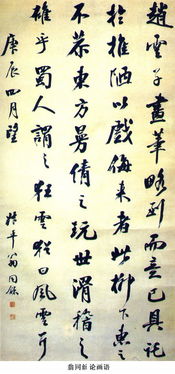 趙雲子畫筆略到而意已具託
於椎陋以戲侮來者此柳下惠之
不恭東方曼倩之玩世滑稽之
雄乎蜀人謂之狂雲猶曰風雲耳
庚辰四月望
叔平翁同龢
翁同龢 论画语